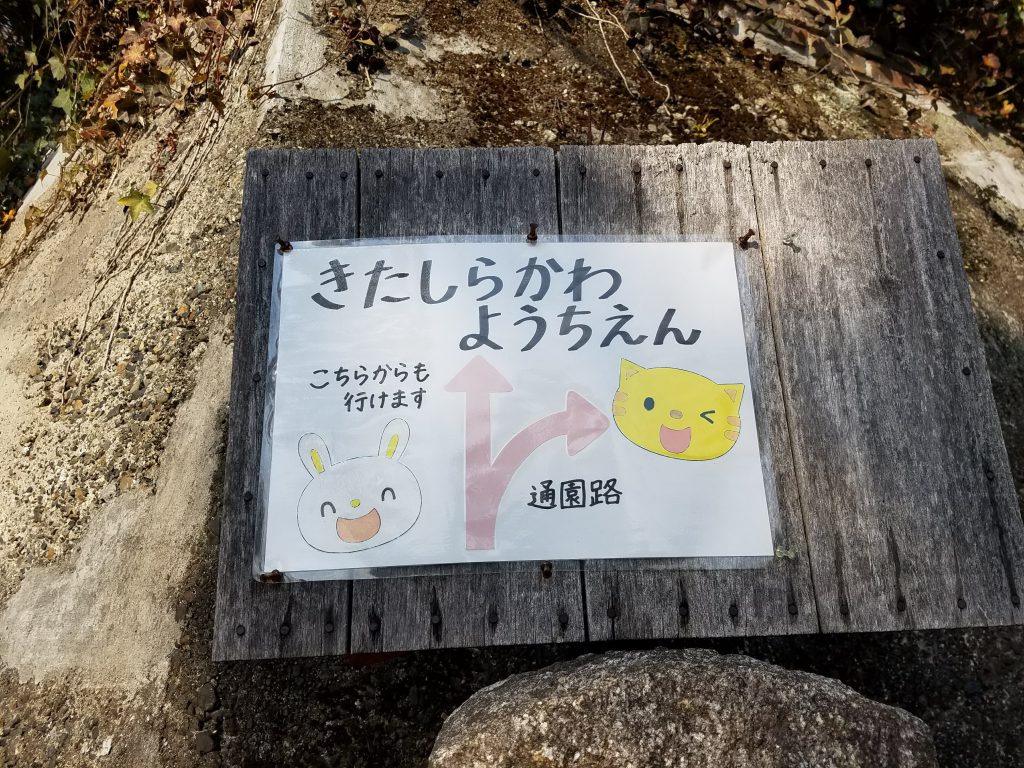 きたしらかわ
ようちえん
こちらからも
行けます
通園路